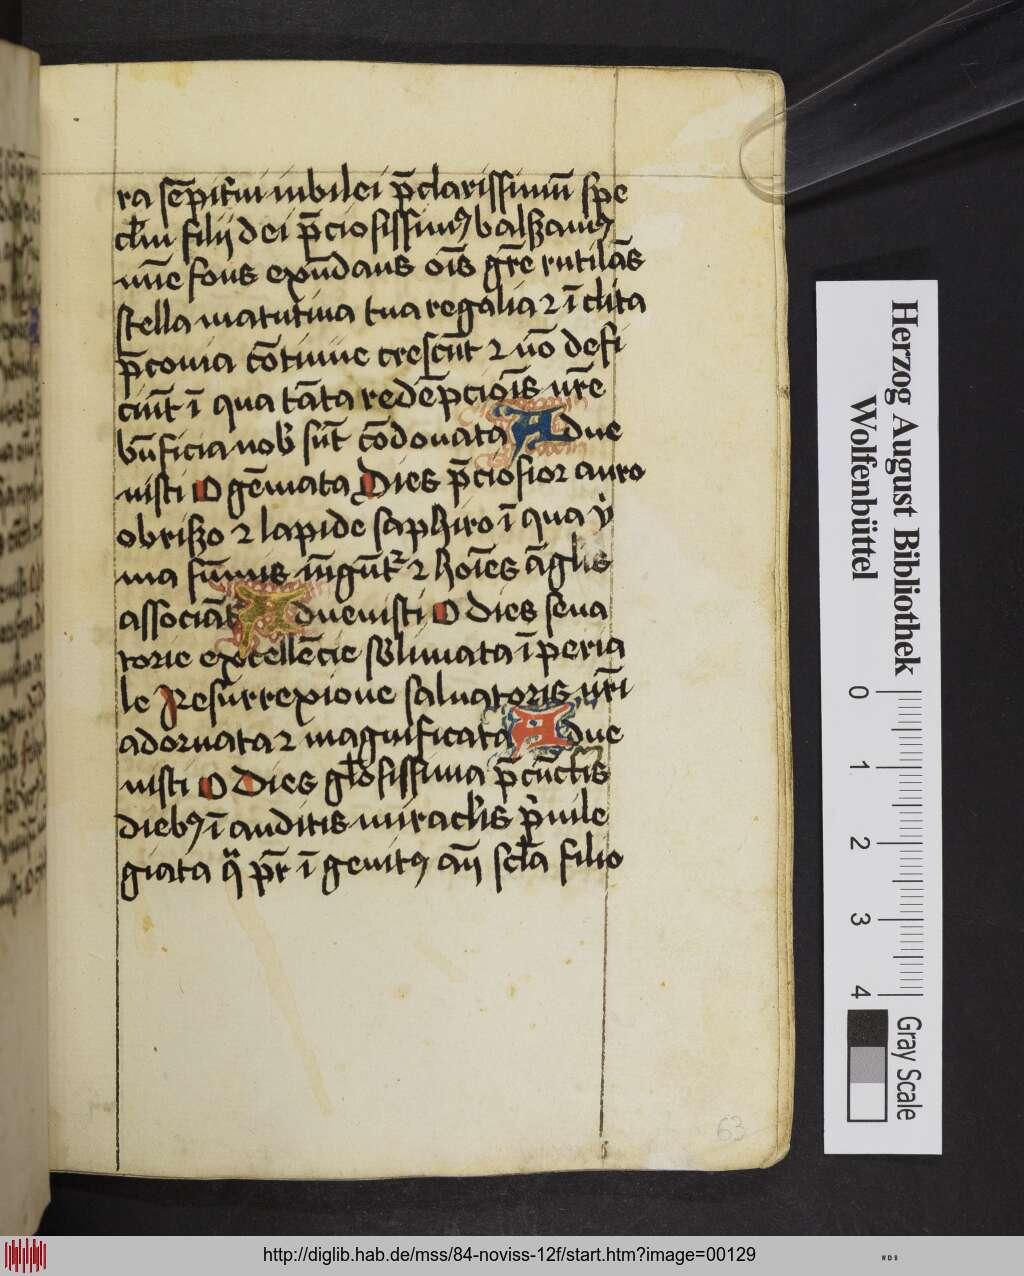 ra se̅pit̅ni iubilei p̅clarissimu̅ spe
cl̅m filij dei p̅ciosissimꝰ balsamꝰ
fons exu̅daus oi̅s gr̅e rutila̅s
stella matutina tua regalia ⁊ i̅clita
p̅conia co̅tinue cresc̅ut ⁊ no̅ defi
ciu̅t i̅ qua ta̅ta rede̅pcio̅is nr̅e
bn̅ficia nob̕ su̅t co̅donata Adue
nisti O ge̅mata Dies p̅ciosior auro
obriszo ⁊ lapide saphiro i̅ qua
ma su̅mis iu̅gu̅t᷑ ⁊ hoi̅es a̅glis
associa̅t᷑ Aduenisti O dies sena
torie excelle̅cie sb̕limata i̅peria
le Resurrexione saluatoris nr̅i
adornata ⁊ magnificata Adue
nisti O Dies gl̅osissima p̅ cu̅ctis
diebꝰ i̅auditis miraclis̕ p̕uile
giata qͣ pr̅ i̅genitꝰ scl̅a filio
63
Herzog August Bibliothek
Wolfenbüttel
0 1 2 3 4
Gray Scale
http://diglib.hab.de/mss/84-noviss-12f/start.htm?image=00129